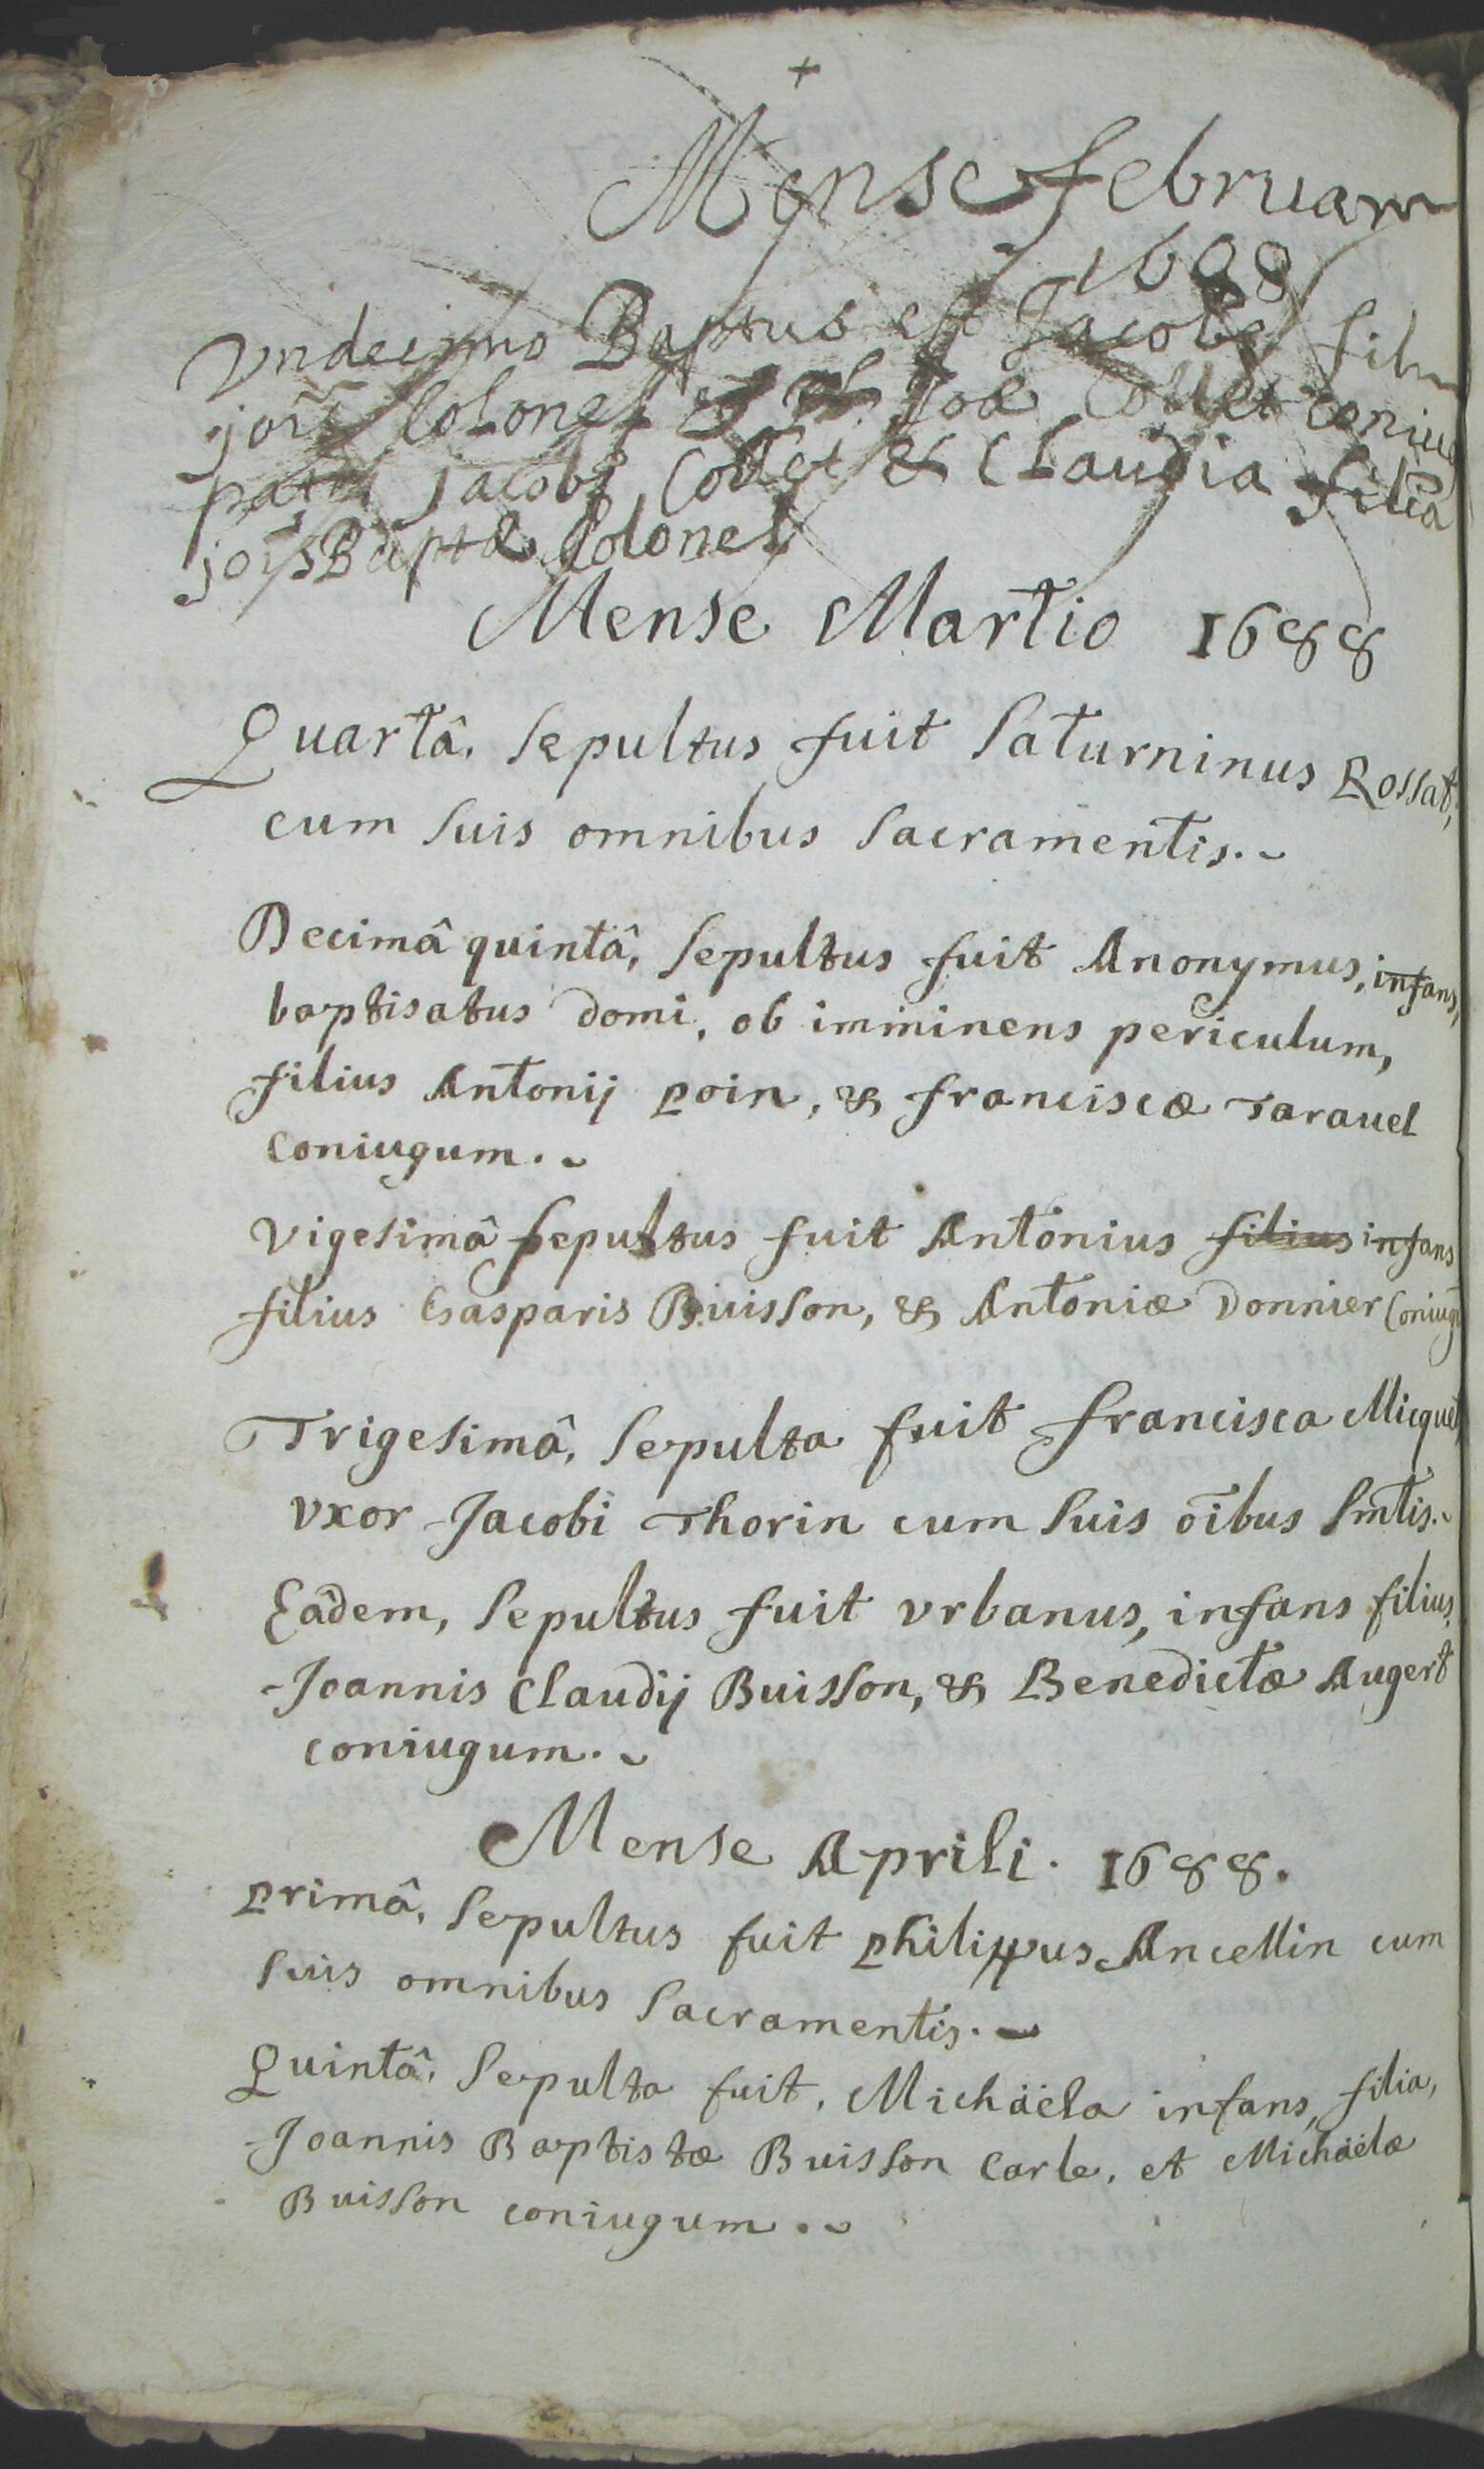 +
Mense februar
1688
Vndecimo Baptus est Jacobus filiu
jois Colonel & Collet coniu
patri Jacobi Collet & Claudia filia
jois Bapta Colonel
Mense Martio 1688
Quartâ, sepultus fuit Saturninus Rossat,
cum suis omnibus sacramentis.
Decimâ quintâ, sepultus fuit Anonymus, infans,
baptisatus domi, ob imminens periculum,
filius Antonij Poin, & franciscæ Tarauel
coniugum.
Vigesimâ sepultus fuit Antonius filius infans
filius Gasparis Buisson, & Antoniæ Donnier Coniug
Trigesimâ, sepulta fuit francisca Micquet,
vxor Jacobi Thorin cum suis oībus smtis.
Eâdem, sepultus fuit vrbanus, infans filius,
Joannis Claudij Buisson, & Benedictæ Augert
coniugum.
Mense Aprili. 1688.
Primâ, sepultus fuit Philippus Ancellin cum
suis omnibus sacramentis.
Quintâ, sepulta fuit, Michaëla infans, filia,
Joannis Baptistæ Buisson Carle, et Michaëlæ
Buisson coniugum.